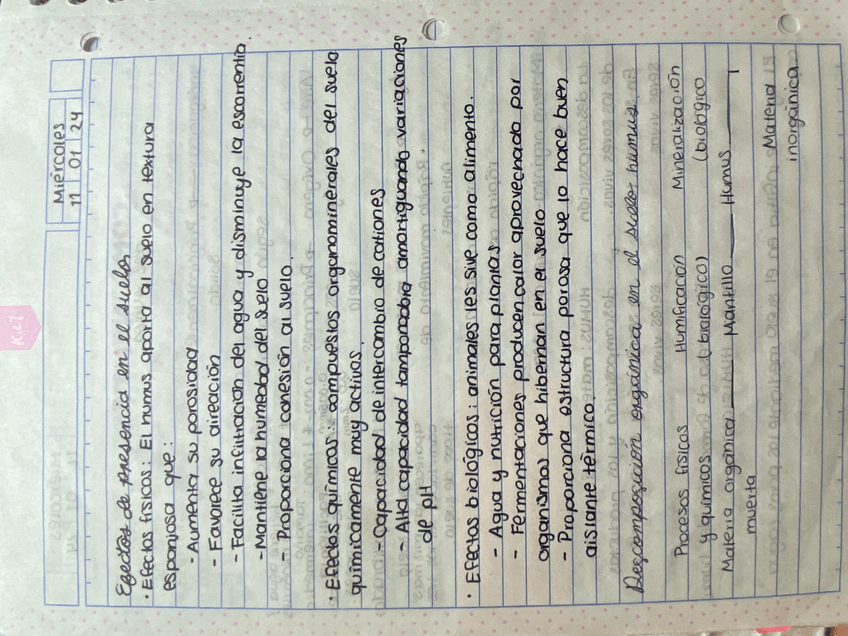 Miércoles
11 01 24
Efectos de presencia en el suelo
· Efectos físicos: El humus aporta al suelo en textura
esponjosa que:
- Aumenta su porosidad
- Favorece su aireación
- Facilita infiltración del agua y disminuye la escorrentia.
- Mantiene la humedad del suelo
- Proporciona conesión al suelo.
· Efectos químicos: compuestos organominerales del suelo
químicamente muy activos.
- Capacidad de intercambio de cationes
- Alta capacidad tamponadora amortiguando variaciones
de pH
· Efectos biológicos: animales les sive como alimento.
- Agua y nutrición para plantas
- Fermentaciones producen calor aprovechado por
organismos que hibernan en el suelo
- Proporciona estructura porosa que lo hace buen
aislante térmico.
Descomposición orgánica en el suelo: humus.
Procesos físicos Humificación Mineralización
y químicos (biológico) (biológico
Materia orgánica ___ Mantillo ___ Humus ___
muerta
Materia
inorgánica